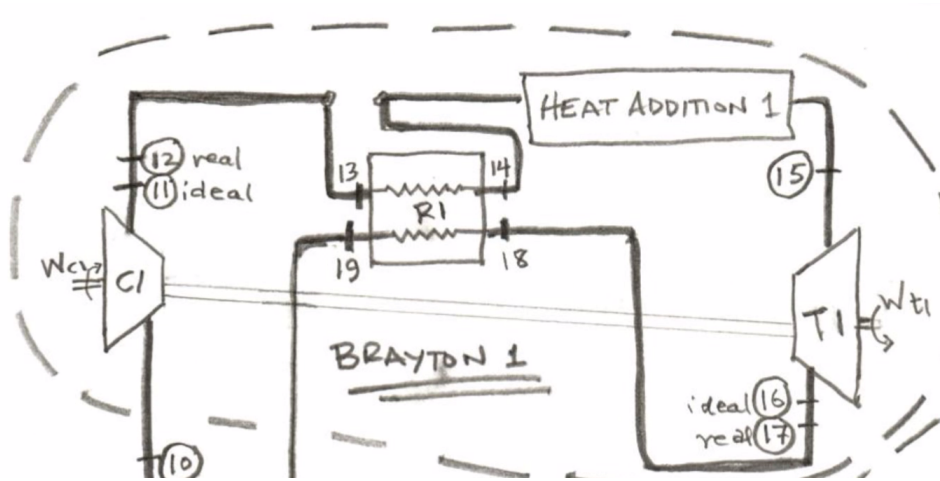 HEAT ADDITION 1
12 real
11 ideal
13
14
15
R1
19
18
Wc1
C1
T1
Wt1
BRAYTON 1
ideal 16
real 17
10